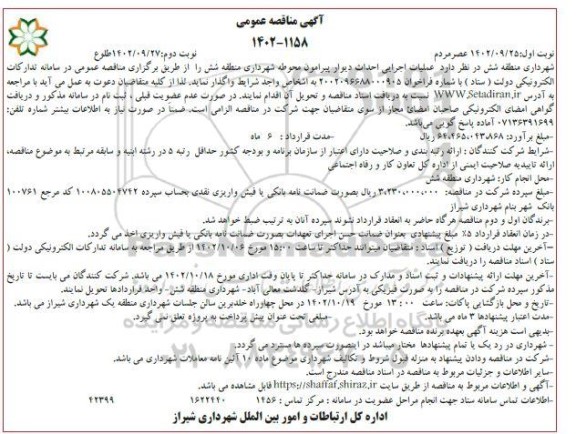 آگهی مناقصه عمومی
۱۴۰۲-۱۱۵۸
نوبت اول:۱۴۰۲/۰۹/۲۵ عصرمردم
نوبت دوم:۱۴۰۲/۰۹/۲۷طلوع
شهرداری منطقه شش در نظر دارد عملیات اجرایی احداث دیوار پیرامون محوطه شهرداری منطقه شش را از طریق برگزاری مناقصه عمومی در سامانه تدارکات
الکترونیکی دولت ( ستاد ) با شماره فراخوان ۲۰۰۲۰۹۶۶۸۸۰۰۰۹۰۵ به اشخاص واجد شرایط واگذار نماید. لذا از کلیه متقاضیان دعوت به عمل می آید با مراجعه
به آدرس WWW.Setadiran.ir نسبت به دریافت اسناد مناقصه و تحویل آن اقدام نمایند. در صورت عدم عضویت قبلی ، ثبت نام در سامانه مذکور و دریافت
گواهی امضای الکترونیکی صاحبان امضائ مجاز از سوی متقاضیان جهت شرکت در مناقصه الزامی است. ضمناً در صورت نیاز به اطلاعات بیشتر شماره تلفن:
۰۷۱۳۶۳۹۱۶۹۹ آماده پاسخ گویی می‌باشد.
-مبلغ برآورد: ۶۴،۴۶۵،۰۴۳،۸۶۸ ریال -مدت قرارداد : ۶ ماه
-شرایط شرکت کنندگان : ارائه رتبه بندی و صلاحیت دارای اعتبار از سازمان برنامه و بودجه کشور حداقل رتبه ۵ در رشته ابنیه و سابقه مرتبط به موضوع مناقصه،
ارائه تاییدیه صلاحیت ایمنی از اداره کل تعاون کار و رفاه اجتماعی
-محل انجام کار: شهرداری منطقه شش
-مبلغ سپرده شرکت در مناقصه: ۳،۲۳۰،۰۰۰،۰۰۰ ریال بصورت ضمانت نامه بانکی یا فیش واریزی نقدی بحساب سپرده ۱۰۰۸۰۵۵۰۴۷۴۲ کد مرجع ۱۰۰۷۶۱
بانک شهر بنام شهرداری شیراز
-برندگان اول و دوم مناقصه هرگاه حاضر به انعقاد قرارداد نشوند سپرده آنان به ترتیب ضبط خواهد شد.
-در زمان انعقاد قرارداد ۵٪ مبلغ پیشنهادی بعنوان ضمانت حسن اجرای تعهدات بصورت ضمانت نامه بانکی یا فیش واریزی اخذ می گردد.
-آخرین مهلت دریافت ( توزیع ) اسناد : متقاضیان میتوانند حداکثر تا ساعت ۱۵:۰۰ مورخ ۱۴۰۲/۱۰/۰۶ از طریق مراجعه به سامانه تدارکات الکترونیکی دولت (
ستاد ) اسناد مناقصه را دریافت نمایند.
-آخرین مهلت ارائه پیشنهادات و ثبت اسناد و مدارک در سامانه حداکثر تا پایان وقت اداری مورخ ۱۴۰۲/۱۰/۱۸ می باشد. شرکت کنندگان می بایست تا تاریخ
مذکور سپرده شرکت در مناقصه را به صورت فیزیکی به آدرس شیراز- گلدشت معالی آباد- شهرداری منطقه شش- واحد قراردادها تحویل نمایند.
-تاریخ و محل بازگشایی پاکات: ساعت ۱۳:۰۰ مورخ ۱۴۰۲/۱۰/۱۹ در محل چهارراه خلدبرین سالن جلسات شهرداری منطقه یک شهرداری شیراز می باشد.
-مدت اعتبار پیشنهادها ۳ ماه می‌باشد. مبلغی تحت عنوان پیش پرداخت به پروژه تعلق نمی گیرد.
-بدیهی است هزینه آگهی بعهده برنده مناقصه خواهد بود.
- شهرداری در رد یک یا تمام پیشنهادها مختار میباشد در اینصورت سپرده ها مسترد می گردد.
-شرکت در مناقصه ودادن پیشنهاد به منزله قبول شروط و تکالیف شهرداری موضوع ماده ۱۰ آئین نامه معاملات شهرداری می باشد.
-سایر اطلاعات و جزئیات مربوط به مناقصه در اسناد مناقصه مندرج است.
-آگهی و اطلاعات مربوط به مناقصه از طریق سایت https://shaffaf.shiraz.ir قابل مشاهده می باشد.
-اطلاعات تماس سامانه ستاد جهت انجام مراحل عضویت در سامانه : مرکز تماس : ۱۴۵۶ ۱۶۲۲۴۴۰ ۴۲۳۹۹
اداره کل ارتباطات و امور بین الملل شهرداری شیراز